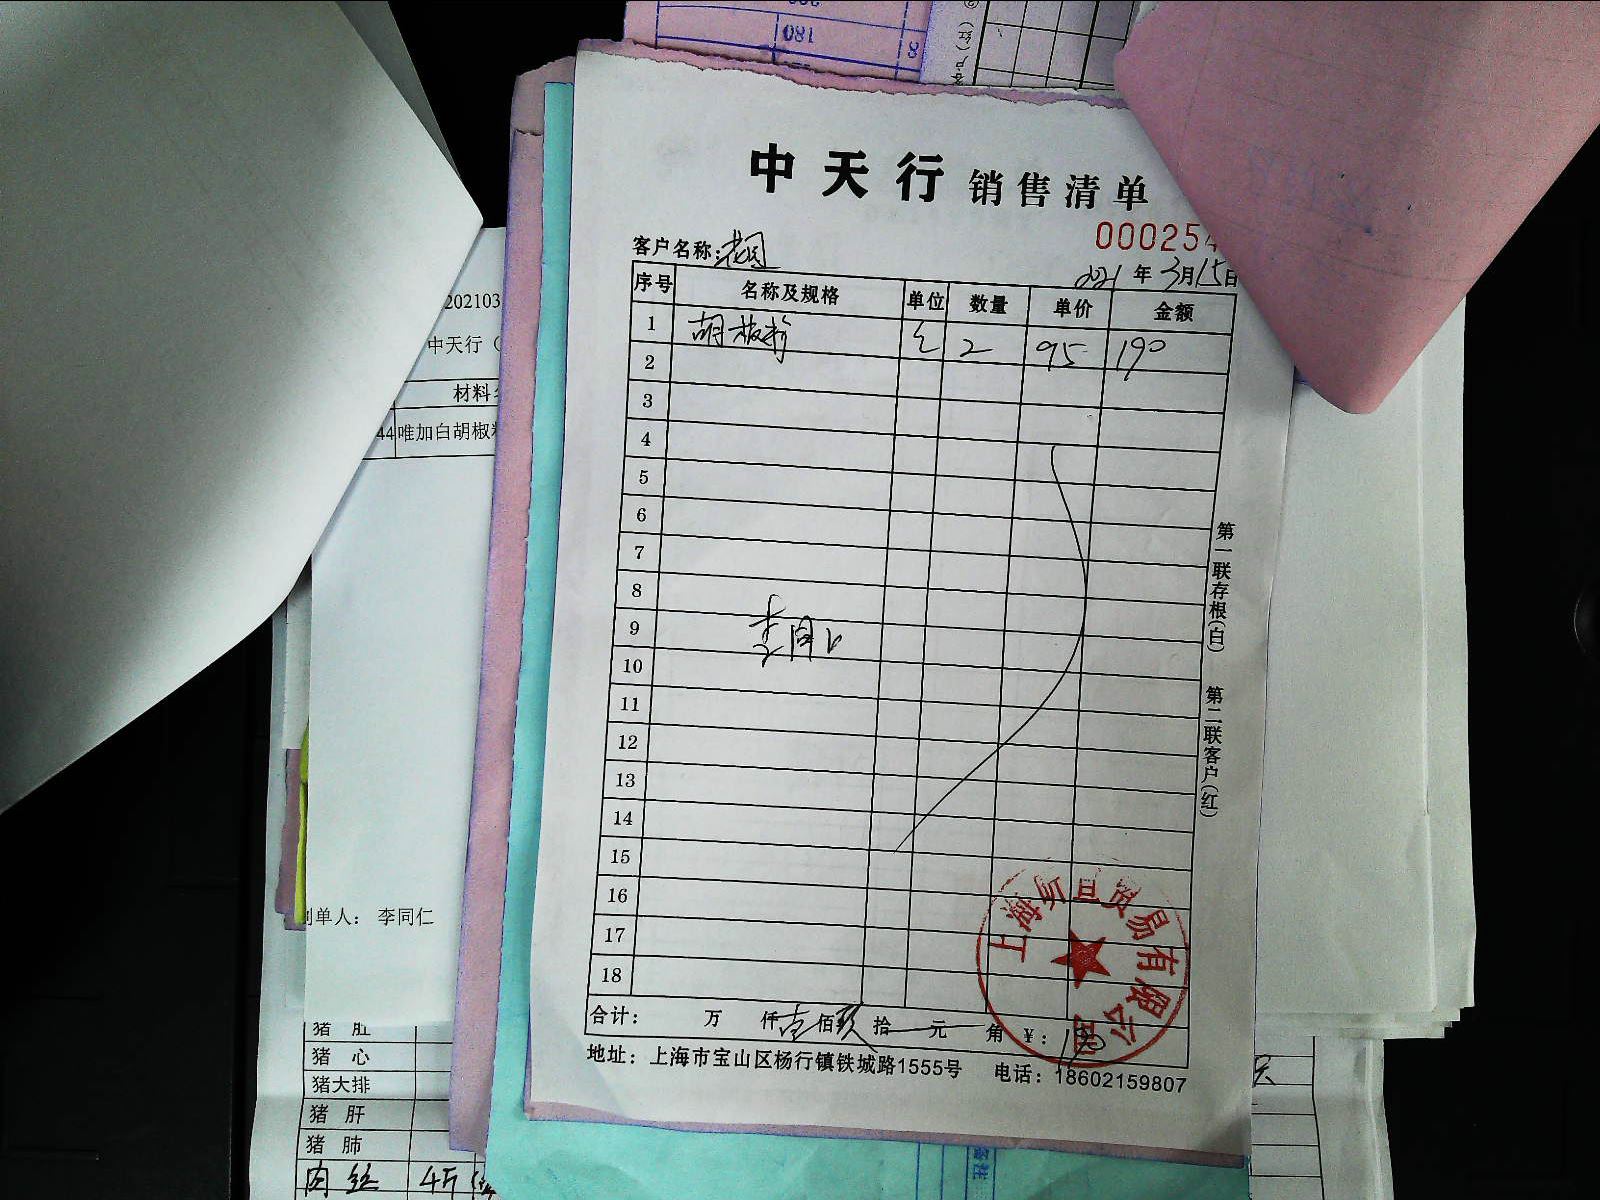 180
8
中天行 销售清单
000254
客户名称:
2021年3月15日
序号 名称及规格 单位 数量 单价 金额
1 胡椒粉 包 2 95 190
2
3
4
5
6
7
8
9
10
11
12
13
14
15
16
17
18
合计: 万 仟壹佰玖拾 元 角 ¥:190
地址: 上海市宝山区杨行镇铁城路1555号 电话: 18602159807
第一联存根(白) 第二联客户(红)
贸易有限公司
202103
中天行(
材料
44 唯加白胡椒粉
制单人: 李同仁
猪 肚
猪 心
猪大排
猪 肝
猪 肺
肉丝 4斤
备注